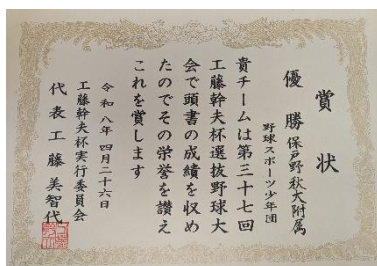 賞状
優勝
保戸野秋大附属
野球スポーツ少年団
貴チームは第三十七回
工藤幹夫杯選抜野球大
会で頭書の成績を収め
たのでその栄誉を讃え
これを賞します
令和八年四月二十六日
工藤幹夫杯実行委員会
代表工藤美智代